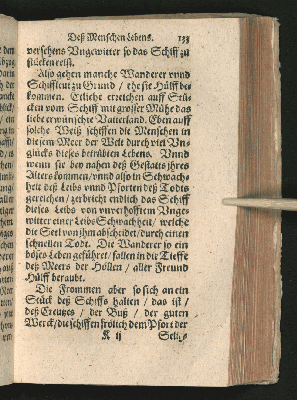 Deß Menschen Lebens. 133
versehens Vngewitter so das Schiff zu
stücken reist.
Also gehen manche Wanderer vnnd
Schiffleut zu Grund / ehe sie Hülff be-
kommen. Etliche erreichen auff Stü-
cken vom Schiff mit grosser Mühe das
liebe erwünschte Vatterland. Eben auff
solche Weiß schiffen die Menschen in
diesem Meer der Welt durch viel Vn-
glücks dieses betrübten Lebens. Vnnd
wenn sie bey nahen deß Gestalts jhres
Alters kommen / vnnd also in Schwach-
heit deß Leibs vnnd Pforten deß Todts
gereichen / zerbricht endlich das Schiff
dieses Leibs von vnverhofftem Vnge-
witter einer Leibs Schwachheit / welche
die Seel von jhm abscheidet / durch einen
schnellen Todt. Die Wanderer so ein
böses Leben geführet / fallen in die Tieffe
deß Meers der Höllen / aller Freund
Hülff beraubt.
Die Frommen aber so sich an ein
Stück deß Schiffs halten / das ist /
deß Creutzes / der Buß / der guten
Werck / die schiffen frölich dem Port der
K ij Selig-